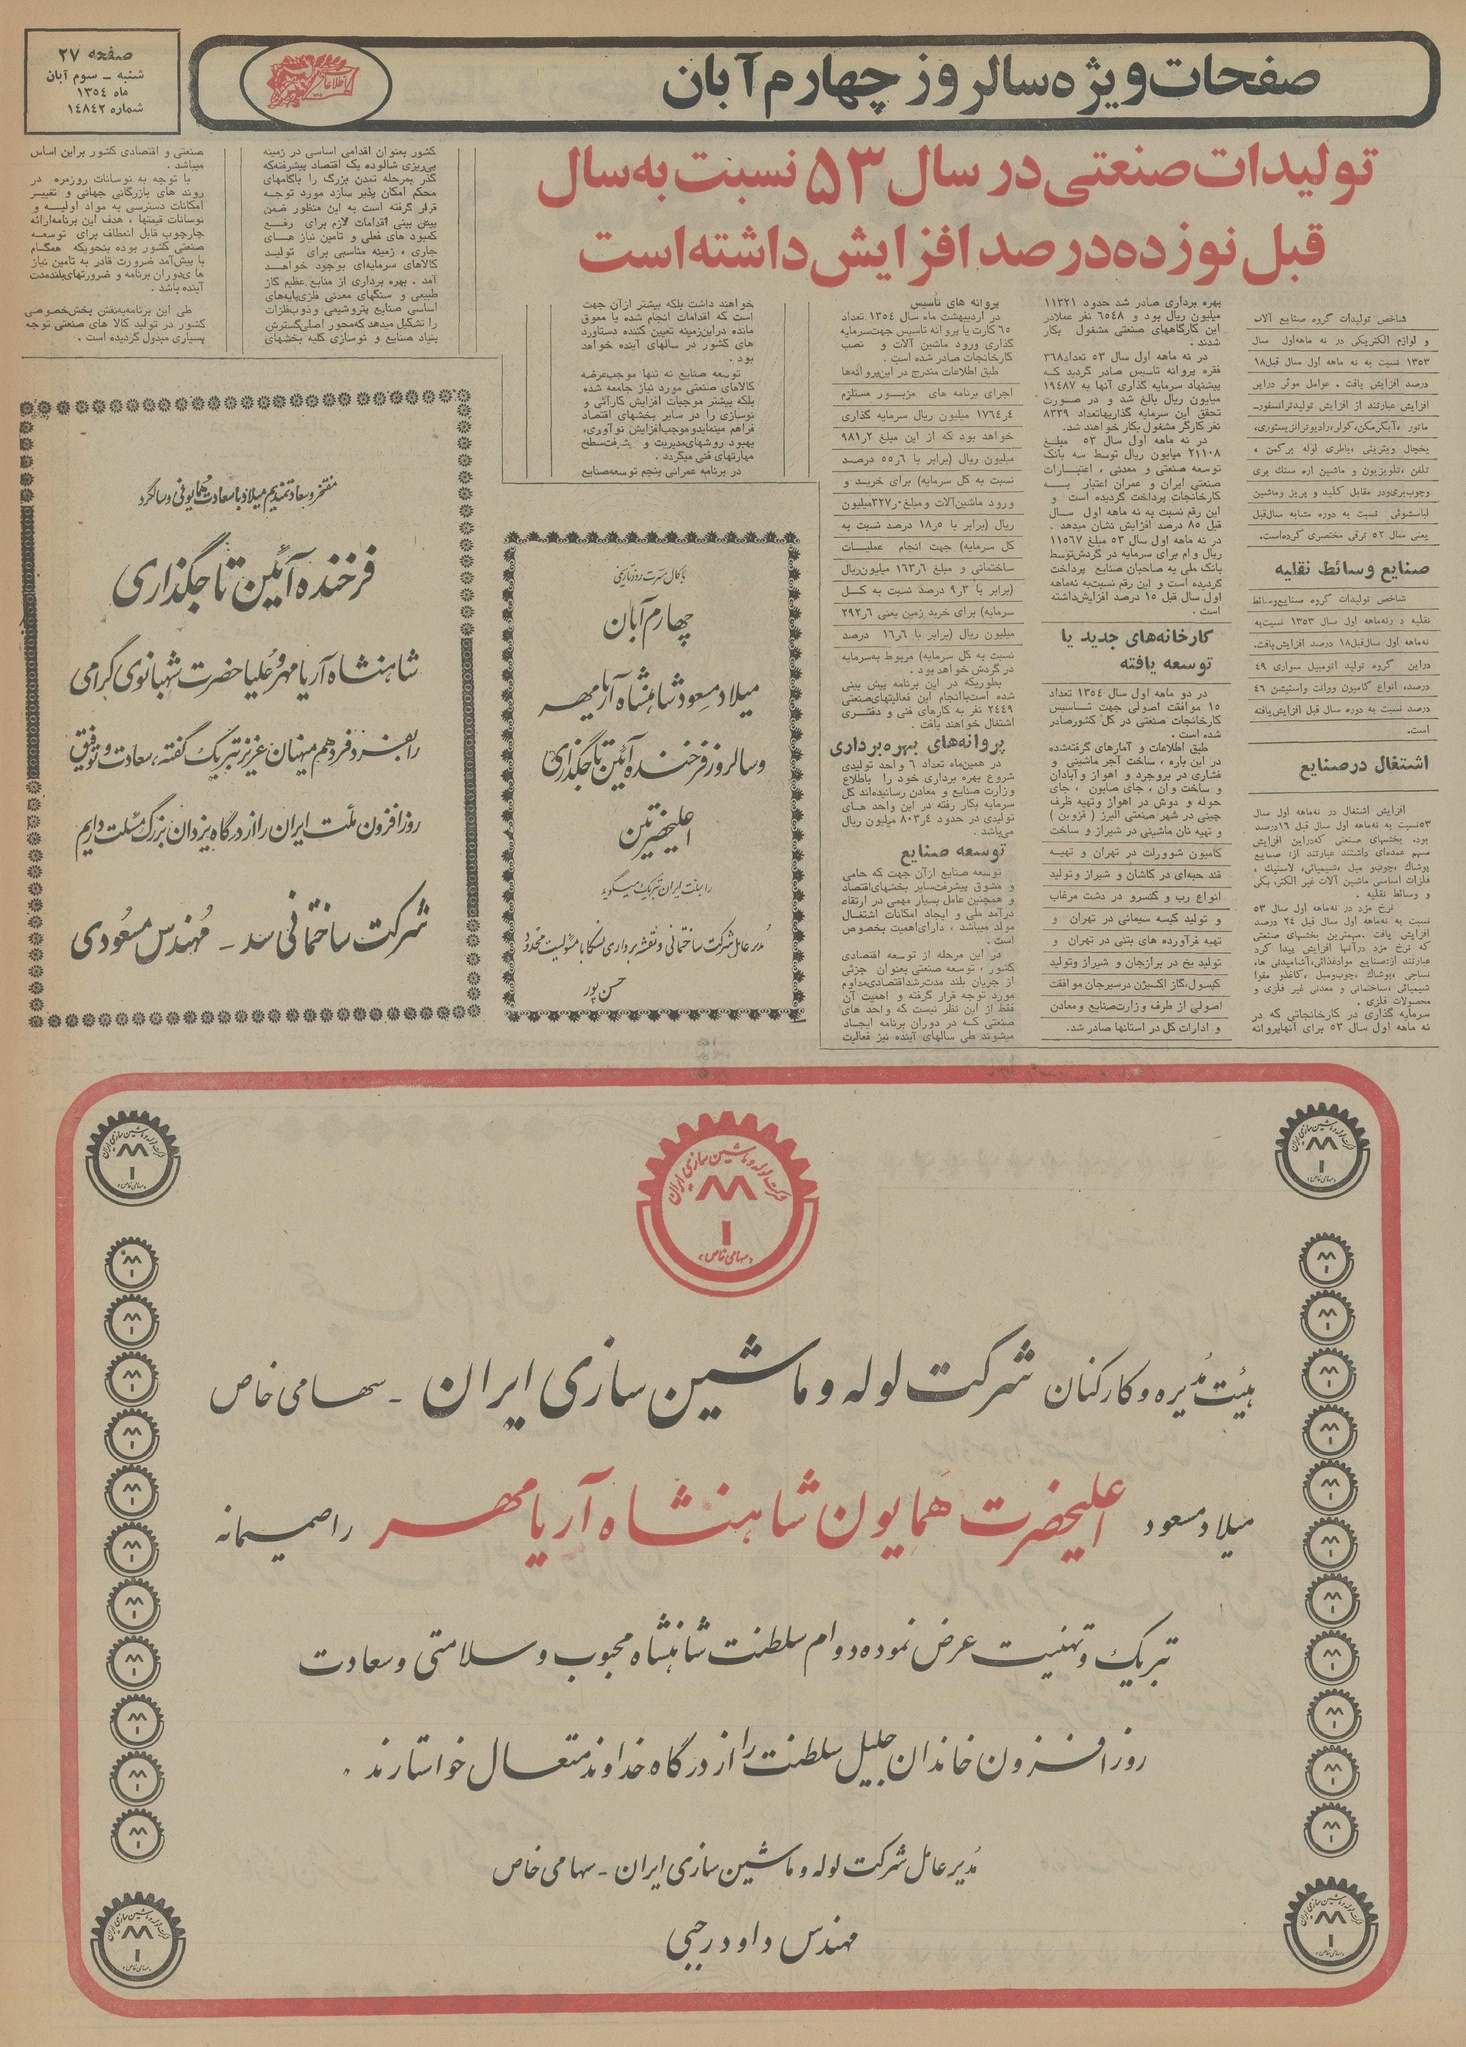 صفحه ۲۷
شنبه ـ سوم آبان
ماه ۱۳۵٤
شماره ۱٤۸٤۲
صفحات ویژه سالروز چهارم آبان
اطلاعات
تولیدات صنعتی در سال ۵۳ نسبت به سال
قبل نوزده درصد افزایش داشته است
شاخص تولیدات گروه صنایع آلات
و لوازم الکتریکی در نه ماهه اول سال
۱۳۵۳ نسبت به نه ماهه اول سال قبل ۱۸
درصد افزایش یافت . عوامل موثر دراین
افزایش عبارتند از افزایش تولید ترانسفور-
ماتور ،آبگرمکن، کولر، رادیو ترانزیستوری،
یخچال ویترینی ،باطری لوله برگمن ،
تلفن ،تلویزیون و ماشین اره سنگ بری
وچوب بری ودر مقابل کلید و پریز وماشین
لباسشوئی نسبت به دوره مشابه سال قبل
یعنی سال ۵۲ ترقی مختصری کرده است.
صنایع وسائط نقلیه
شاخص تولیدات گروه صنایع وسائط
نقلیه د رنه ماهه اول سال ۱۳۵۳ نسبت به
نه ماهه اول سال قبل ۱۸ درصد افزایش یافت.
دراین گروه تولید اتومبیل سواری ٤۹
درصد، انواع کامیون ووانت واستیشن ٤۶
درصد نسبت به دوره سال قبل افزایش یافته
است.
اشتغال در صنایع
افزایش اشتغال در نه ماهه اول سال
۵۳ نسبت به نه ماهه اول سال قبل ۱۶ درصد
بود. بخشهای صنعتی که دراین افزایش
سهم عمده ای داشتند عبارتند از: صنایع
پوشاك ،چوب و مبل ،شیمیائی، لاستیك ،
فلزات اساسی ماشین آلات غیر الکتریکی
و وسائط نقلیه .
نرخ مزد در نه ماهه اول سال ۵۳
نسبت به نه ماهه اول سال قبل ۲٤ درصد
افزایش یافت .مهمترین بخشهای صنعتی
که نرخ مزد درآنها افزایش پیدا کرد
عبارتند از: صنایع موادغذائی، آشامیدنی ها،
نساجی ،پوشاك، چوب ومبل ،کاغذو مقوا
شیمیائی ،ساختمانی و معدنی غیر فلزی و
محصولات فلزی .
سرمایه گذاری در کارخانجاتی که در
نه ماهه اول سال ۵۳ برای آنها پروانه
بهره برداری صادر شد حدود ۱۱۳۲۱
میلیون ریال بود و ۶۵٤۸ نفر عملادر
این کارگاههای صنعتی مشغول بکار
شدند .
در نه ماهه اول سال ۵۳ تعداد ۳۶۸
فقره پروانه تاسیس صادر گردید که
پیشنهاد سرمایه گذاری آنها به ۱۹٤۸۷
میلیون ریال بالغ شد و در صورت
تحقق این سرمایه گذاریها تعداد ۸۳۳۹
نفر کارگر مشغول بکار خواهند شد.
در نه ماهه اول سال ۵۳ مبلغ
۲۱۱۰۸ میلیون ریال توسط سه بانك
توسعه صنعتی و معدنی ، اعتبارات
صنعتی ایران و عمران اعتبار به
کارخانجات پرداخت گردیده است و
این رقم نسبت به نه ماهه اول سال
قبل ۸۵ درصد افزایش نشان میدهد .
در نه ماهه اول سال ۵۳ مبلغ ۱۱۵۶۷
ریال وام برای سرمایه در گردش توسط
بانك ملی به صاحبان صنایع پرداخت
گردیده است و این رقم نسبت به نه ماهه
اول سال قبل ۱۵ درصد افزایش داشته
است .
کارخانه های جدید یا
توسعه یافته
در دو ماهه اول سال ۱۳۵٤ تعداد
۱۵ موافقت اصولی جهت تاسیس
کارخانجات صنعتی در کل کشور صادر
شده است .
طبق اطلاعات و آمارهای گرفته شده
در این باره ، ساخت آجر ماشینی و
فشاری در بروجرد و اهواز وآبادان
و ساخت وان ، جای صابون ، جای
حوله و دوش در اهواز وتهیه ظرف
چینی در شهر صنعتی البرز ( قزوین )
و تهیه نان ماشینی در شیراز و ساخت
کامیون شوورلت در تهران و تهیه
قند حبه ای در کاشان و شیراز وتولید
انواع رب و کنسرو در دشت مرغاب
و تولید کیسه سیمانی در تهران و
تهیه فرآورده های بتنی در تهران و
تولید یخ در برازجان و شیراز وتولید
کپسول، گاز اکسیژن درسیرجان موافقت
اصولی از طرف وزارت صنایع و معادن
و ادارات کل در استانها صادر شد.
پروانه های تاسیس
در اردیبهشت ماه سال ۱۳۵٤ تعداد
۶۵ کارت یا پروانه تاسیس جهت سرمایه
گذاری ورود ماشین آلات و نصب
کارخانجات صادر شده است .
طبق اطلاعات مندرج در این پروانه ها
اجرای برنامه های مزبور مستلزم
٤ر۱۷۶٤ میلیون ریال سرمایه گذاری
خواهد بود که از این مبلغ ۲ر۹۸۱
میلیون ریال (برابر با ۶ر۵۵ درصد
نسبت به کل سرمایه) برای خرید و
ورود ماشین آلات و مبلغ ۰ر۳۲۷ میلیون
ریال (برابر با ۵ر۱۸ درصد نسبت به
کل سرمایه) جهت انجام عملیات
ساختمانی و مبلغ ۶ر۱۶۳ میلیون ریال
(برابر با ۳ر۹ درصد نسبت به کل
سرمایه) برای خرید زمین یعنی ۶ر۲۹۲
میلیون ریال (برابر با ۶ر۱۶ درصد
نسبت به کل سرمایه) مربوط به سرمایه
در گردش خواهد بود .
بطوریکه در این برنامه پیش بینی
شده است با انجام این فعالیتهای صنعتی
۲٤٤۹ نفر به کارهای فنی و دفتری
اشتغال خواهند یافت .
پروانه های بهره برداری
در همین ماه تعداد ۶ واحد تولیدی
شروع بهره برداری خود را باطلاع
وزارت صنایع و معادن رسانیده اند کل
سرمایه بکار رفته در این واحد های
تولیدی در حدود ٤ر۸۰۳ میلیون ریال
می باشد .
توسعه صنایع
توسعه صنایع ازآن جهت که حامی
و مشوق پیشرفت سایر بخشهای اقتصاد
و همچنین عامل بسیار مهمی در ارتقاء
درآمد ملی و ایجاد امکانات اشتغال
مولد میباشد ، دارای اهمیت بخصوص
است .
در این مرحله از توسعه اقتصادی
کشور ، توسعه صنعتی بعنوان جزئی
از جریان بلند مدت رشد اقتصادی مداوم
مورد توجه قرار گرفته و اهمیت آن
فقط از این نظر نیست که واحد های
صنعتی که در دوران برنامه ایجاد
میشوند طی سالهای آینده نیز فعالیت
خواهند داشت بلکه بیشتر ازآن جهت
است که اقدامات انجام شده یا معوق
مانده دراین زمینه تعیین کننده دستاورد
های کشور در سالهای آینده خواهد
بود .
توسعه صنایع نه تنها موجب عرضه
کالاهای صنعتی مورد نیاز جامعه شده
بلکه بیشتر موجبات افزایش کارآئی و
نوسازی را در سایر بخشهای اقتصاد
فراهم مینماید و موجب افزایش نوآوری،
بهبود روشهای مدیریت و سطح
مهارتهای فنی میگردد .
در برنامه عمرانی پنجم توسعه صنایع
کشور بعنوان اقدامی اساسی در زمینه
پی ریزی شالوده یك اقتصاد پیشرفته که
گذر بمرحله تمدن بزرگ را باگامهای
محکم امکان پذیر سازد مورد توجه
قرار گرفته است به این منظور ضمن
پیش بینی اقدامات لازم برای رفع
کمبود های فعلی و تامین نیاز های
جاری ، زمینه مناسبی برای تولید
کالاهای سرمایه ای بوجود خواهد
آمد . بهره برداری از منابع عظیم گاز
طبیعی و سنگهای معدنی فلزی پایه های
اساسی صنایع پتروشیمی و ذوب فلزات
را تشکیل میدهد که محور اصلی گسترش
بنیاد صنایع و نوسازی کلیه بخشهای
صنعتی و اقتصادی کشور براین اساس
میباشد .
با توجه به نوسانات روزمره در
روند های بازرگانی جهانی و تغییر
امکانات دسترسی به مواد اولیه و
نوسانات قیمتها ، هدف این برنامه ارائه
چارچوب قابل انعطاف برای توسعه
صنعتی کشور بوده بنحویکه هنگام
با پیش آمد ضرورت قادر به تامین نیاز
های دوران برنامه و ضرورتهای بلندمدت
آینده باشد .
طی این برنامه به نقش بخش خصوصی
کشور در تولید کالا های صنعتی توجه
بسیاری مبذول گردیده است .
با کمال مسرت روز تاریخی
چهارم آبان
میلاد مسعود شاهنشاه آریامهر
و سالروز فرخنده آئین تاجگذاری
اعلیحضرتین
را بملت ایران تبریک میگوید
مدیر عامل شرکت ساختمانی و نقشه برداری نسکا با مسئولیت محدود
حسن پور
مفتخر و سعادتمندیم میلاد با سعادت همایونی و سالگرد
فرخنده آئین تاجگذاری
شاهنشاه آریامهر و علیا حضرت شهبانوی گرامی
را بفرد فرد هم میهنان عزیز تبریک گفته، سعادت و توفیق
روز افزون ملت ایران را از درگاه یزدان بزرگ مسئلت داریم
شرکت ساختمانی سد ـ مهندس مسعودی
شرکت لوله و ماشین سازی ایران
«سهامی خاص»
هیئت مدیره و کارکنان شرکت لوله و ماشین سازی ایران ـ سهامی خاص
میلاد مسعود اعلیحضرت همایون شاهنشاه آریا مهر را صمیمانه
تبریک و تهنیت عرض نموده دوام سلطنت شاهنشاه محبوب و سلامتی و سعادت
روز افزون خاندان جلیل سلطنت را از درگاه خداوند متعال خواستارند .
مدیر عامل شرکت لوله و ماشین سازی ایران ـ سهامی خاص
مهندس داود رجبی